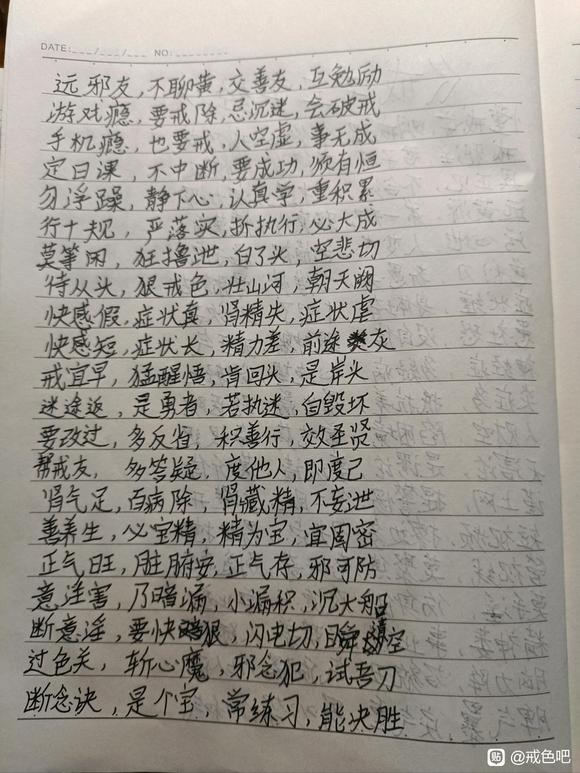 DATE: ___/___/___ NO: ________
远邪友，不聊黄，交善友，互勉励
游戏瘾，要戒除，忌沉迷，会破戒
手机瘾，也要戒，人空虚，事无成
定日课，不中断，要成功，须有恒
勿浮躁，静下心，认真学，重积累
行十规，严落实，拆执行，必大成
莫等闲，狂撸泄，白了头，空悲切
待从头，狠戒色，壮山河，朝天阙
快感假，症状真，肾精失，症状虐
快感短，症状长，精力差，前途灰
戒宜早，猛醒悟，肯回头，是岸头
迷途返，是勇者，若执迷，自毁坏
要改过，多反省，积善行，效圣贤
帮戒友，多答疑，度他人，即度己
肾气足，百病除，肾藏精，不妄泄
善养生，必宝精，精为宝，宜固密
正气旺，脏腑安，正气存，邪可防
意淫害，乃暗漏，小漏积，沉大船
断意淫，要快狠，闪电切，瞬清空
过色关，斩心魔，邪念犯，试吾刀
断念诀，是个宝，常练习，能决胜
贴 @戒色吧